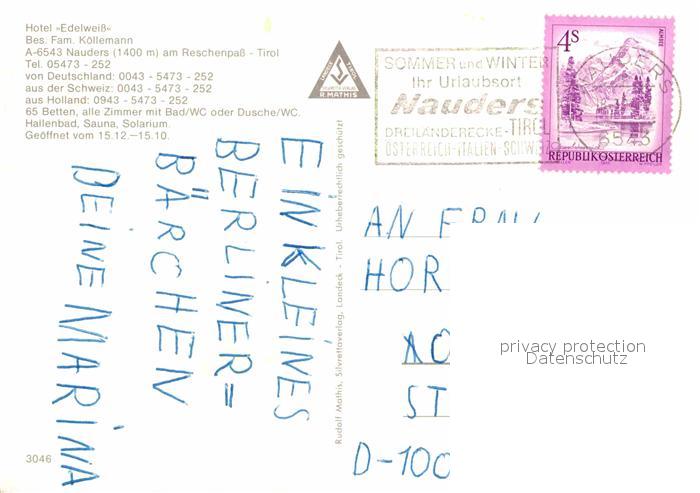 Hotel »Edelweiß«
Bes. Fam. Köllemann
A-6543 Nauders (1400 m) am Reschenpaß - Tirol
Tel. 05473 - 252
von Deutschland: 0043 - 5473 - 252
aus der Schweiz: 0043 - 5473 - 252
aus Holland: 0943 - 5473 - 252
65 Betten, alle Zimmer mit Bad/WC oder Dusche/WC.
Hallenbad, Sauna, Solarium.
Geöffnet vom 15.12.—15.10.
EIN KLEINES
BERLINER=
BÄRCHEN
DEINE MARINA
3046
R. MATHIS
Rudolf Mathis, Silvrettaverlag, Landeck - Tirol. Urheberrechtlich geschützt
SOMMER und WINTER
Ihr Urlaubsort
Nauders
DREILÄNDERECKE-TIROL
ÖSTERREICH-ITALIEN-SCHWEIZ
4S
ALMSEE
REPUBLIK ÖSTERREICH
NAUDERS
6543
AN
HOR
ST
D-100
privacy protection
Datenschutz